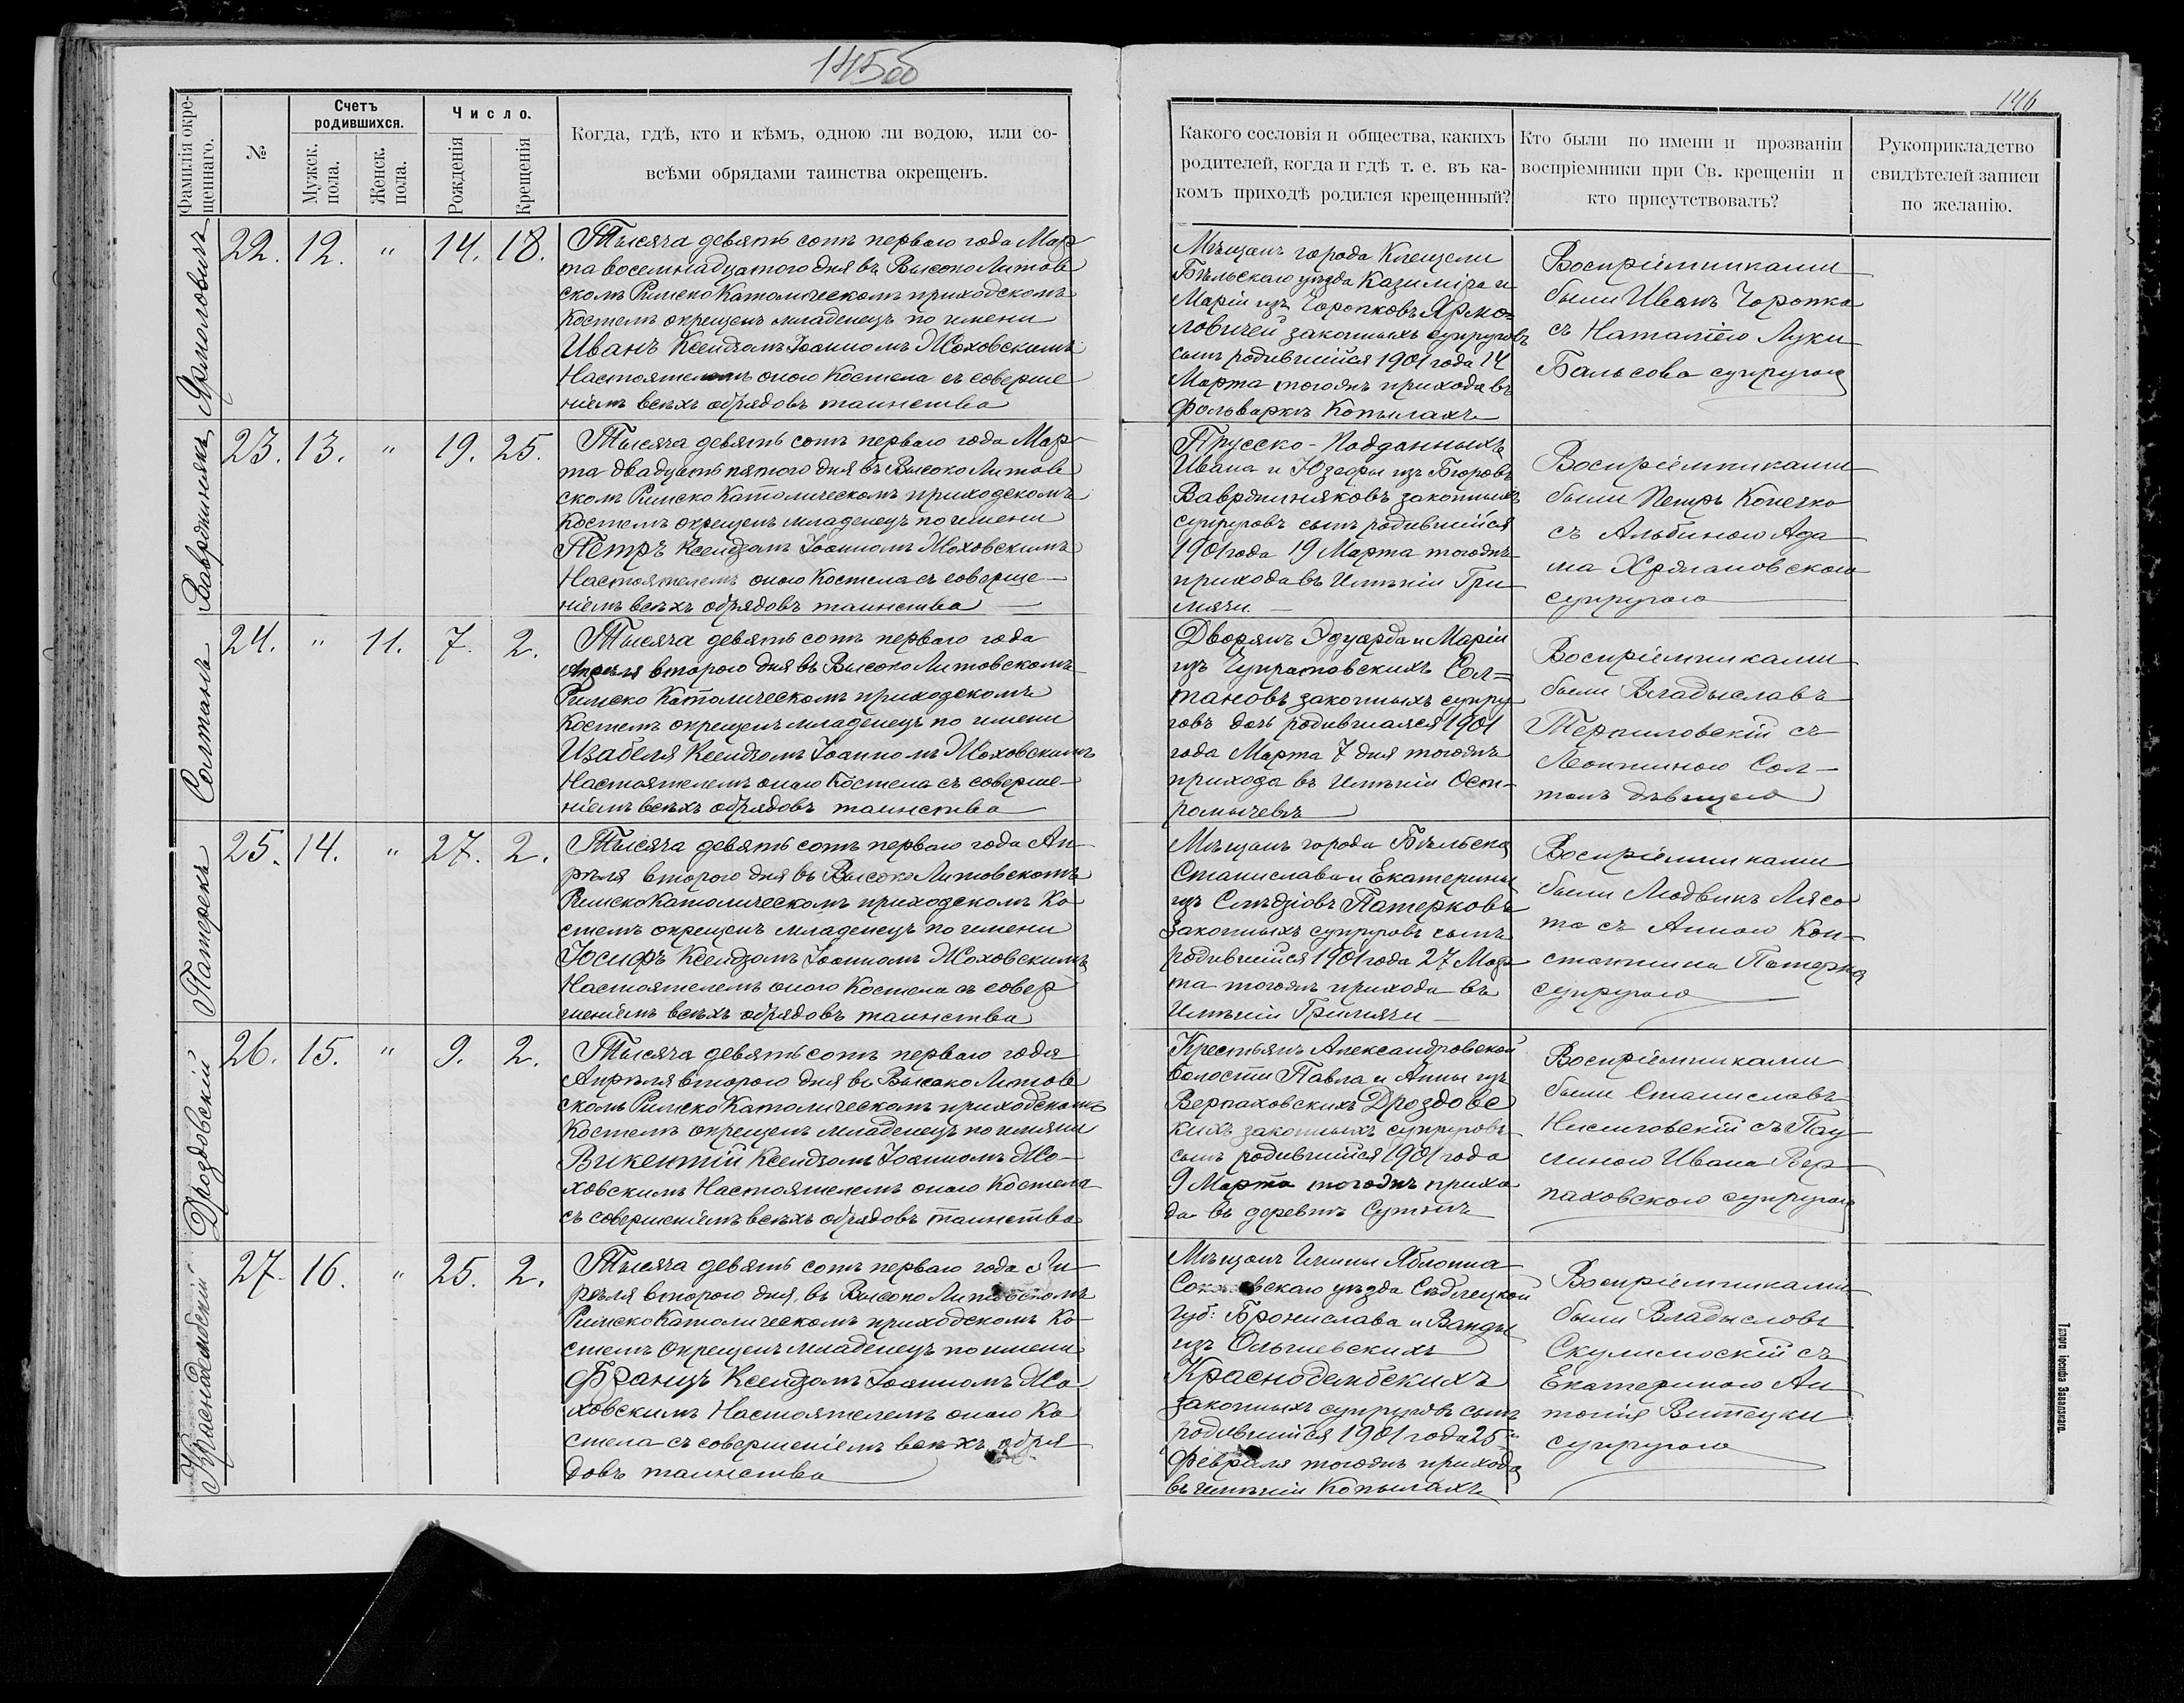 145об
146
Фамилія окрещеннаго.
№
Счетъ родившихся.
Мужск. пола.
Женск. пола.
Число.
Рожденія
Крещенія
Когда, гдѣ, кто и кѣмъ, одною ли водою, или со-
всѣми обрядами таинства окрещенъ.
Какого сословія и общества, какихъ
родителей, когда и гдѣ т. е. въ ка-
комъ приходѣ родился крещенный?
Кто были по имени и прозванiи
воспріемники при Св. крещеніи и
кто присутствовалъ?
Рукоприкладство
свидѣтелей записи
по желанію.
Ярмоловичъ
22. 12. " 14. 18.
Тысяча девять сотъ перваго года Мар-
та восемнадцатого дня въ Высоко Литов
скомъ Римско Католическомъ приходскомъ
Костелѣ окрещенъ младенецъ по имени
Иванъ Ксендзомъ Іоанномъ Жоховскимъ
Настоятелемъ оного Костела съ соверше
ніемъ всѣхъ обрядовъ таинства
Мѣщанъ города Клещели
Бѣльскаго уѣзда Казиміра и
Маріи изъ Чоропковъ Ярмо=
ловичей законныхъ супруговъ
сынъ родившійся 1901 года 14
Марта тогожъ прихода въ
фольваркѣ Копылахъ
Воспріемниками
были Иванъ Чоропка
съ Наталіею Луки
Бальсова супругою
Вавржинякъ
23. 13. " 19. 25.
Тысяча девять сотъ перваго года Мар-
та двадцать пятого дня въ Высоко Литов
скомъ Римско Католическомъ приходскомъ
Костелѣ окрещенъ младенецъ по имени
Петръ Ксендзомъ Іоанномъ Жоховскимъ
Настоятелемъ оного Костела съ соверше-
ніемъ всѣхъ обрядовъ таинства
Прусско-Подданныхъ
Ивана и Юзефы изъ Бюровъ
Вавржиняковъ законныхъ
супруговъ сынъ родившійся
1901 года 19 Марта тогожъ
прихода въ Имѣніи Гри
мячи
Воспріемниками
были Петръ Конечко
съ Альбиною Ада
ма Хржановского
супругою
Солтанъ
24. " 11. 7. 2.
Тысяча девять сотъ перваго года
Апрѣля второго дня въ Высоко Литовскомъ
Римско Католическомъ приходскомъ
Костелѣ окрещенъ младенецъ по имени
Изабеля Ксендзомъ Іоанномъ Жоховскимъ
Настоятелемъ оного Костела съ соверше-
ніемъ всѣхъ обрядовъ таинства
Дворянъ Эдуарда и Маріи
изъ Чупратовскихъ Сол=
тановъ законныхъ супру
говъ дочь родившаяся 1901
года Марта 7 дня тогожъ
прихода въ Имѣніи Ост-
ромычевѣ
Воспріемниками
были Владыславъ
Терпиловскій съ
Леонтиною Сол-
танъ дѣвицею
Патерекъ
25. 14. " 27. 2.
Тысяча девять сотъ перваго года Ап-
рѣля второго дня въ Высоко Литовскомъ
Римско Католическомъ приходскомъ Ко
стелѣ окрещенъ младенецъ по имени
Іосифъ Ксендзомъ Іоанномъ Жоховскимъ
Настоятелемъ оного Костела съ совер
шеніемъ всѣхъ обрядовъ таинства
Мѣщанъ города Бѣльска
Станислава и Екатерины
изъ Патерковъ
законныхъ супруговъ сынъ
родившійся 1901 года 27 Мар
та тогожъ прихода въ
Имѣніи Гримячи
Воспріемниками
были Людвикъ Лясо
та съ Анною Кон-
стантина Патерка
супругою
Дроздовскій
26. 15. " 9. 2.
Тысяча девять сотъ перваго года
Апрѣля второго дня въ Высоко Литов
скомъ Римско Католическомъ приходскомъ
Костелѣ окрещенъ младенецъ по имени
Викентій Ксендзомъ Іоанномъ Жо-
ховскимъ Настоятелемъ оного Костела
съ совершеніемъ всѣхъ обрядовъ таинства
Крестьянъ Александровской
волости Павла и Анны изъ
Верпаховскихъ Дроздовс
кихъ законныхъ супруговъ
сынъ родившійся 1901 года
9 Марта тогожъ прихо
да въ деревнѣ
Воспріемниками
были Станиславъ
съ Пау
линою Ивана Вер
паховского супругою
Краснодембскій
27. 16. " 25. 2.
Тысяча девять сотъ перваго года Ап-
рѣля второго дня въ Высоко Литовскомъ
Римско Католическомъ приходскомъ Ко
стелѣ окрещенъ младенецъ по имени
Францъ Ксендзомъ Іоанномъ Жо
ховскимъ Настоятелемъ оного Ко
стела съ совершеніемъ всѣхъ обря
довъ таинства
Мѣщанъ Гмины Яблонна
Соколовскаго уѣзда Сѣдлецкой
губ: Бронислава и Ванды
изъ Ольшевскихъ
Краснодембскихъ
законныхъ супруговъ сынъ
родившійся 1901 года 25
Февраля тогожъ прихода
въ имѣніи Копылахъ
Воспріемниками
были Владыславъ
съ
Екатериною Ан
тонія Витецки
супругою